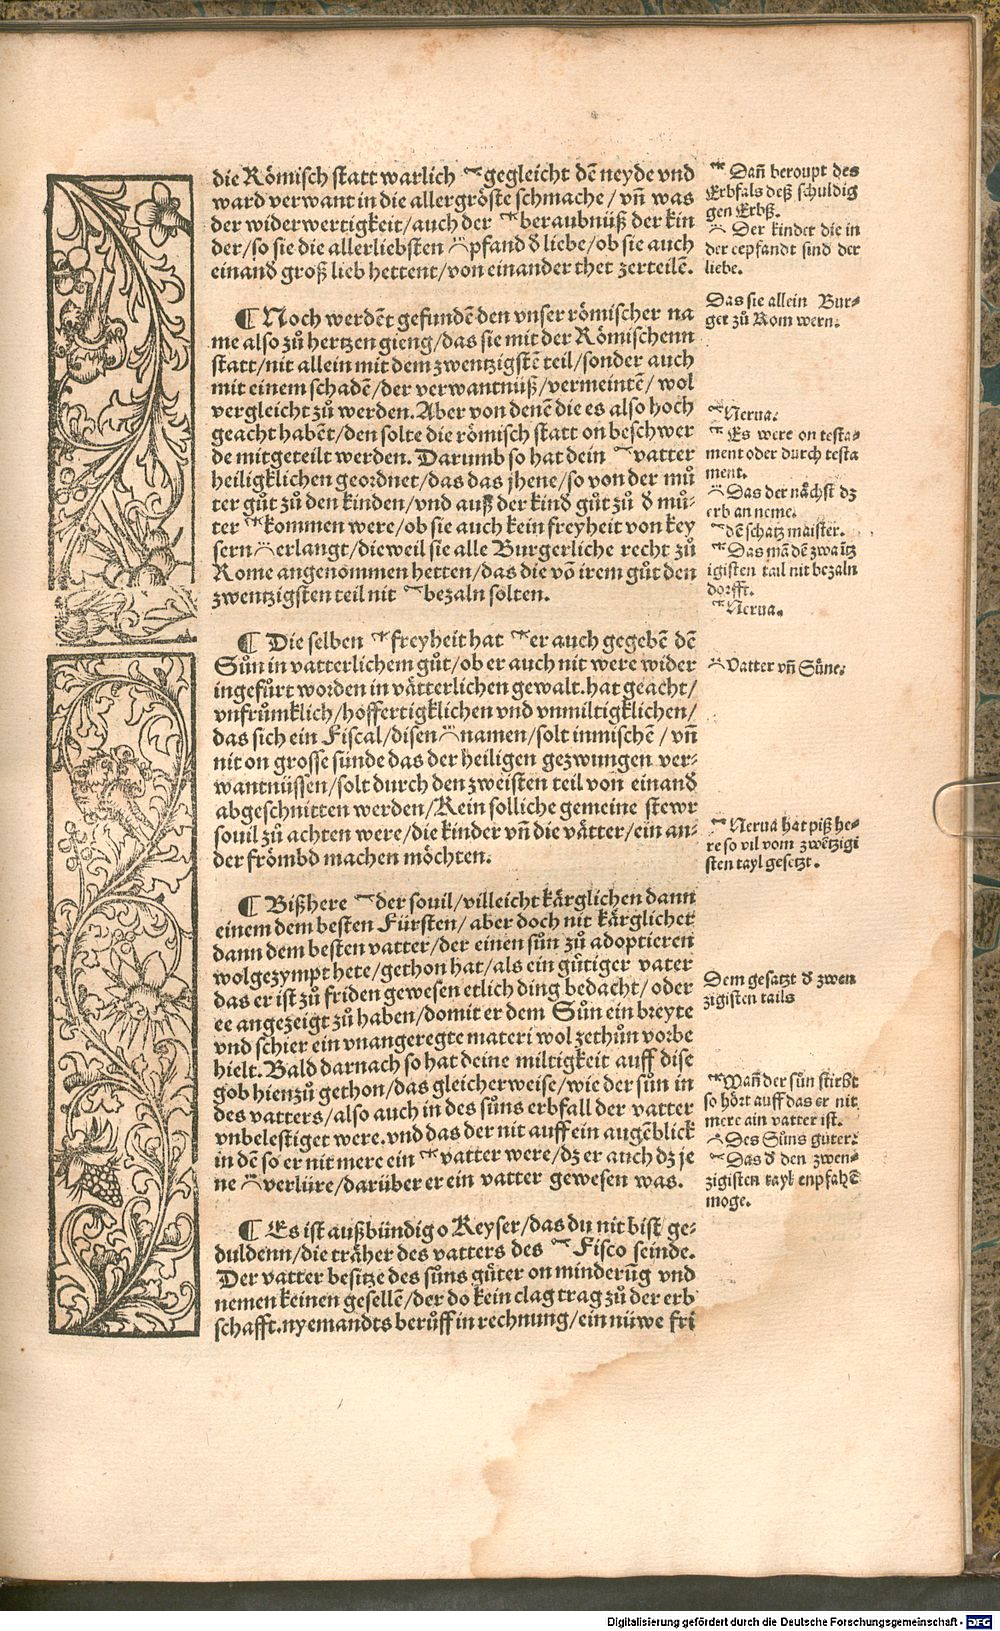 die Römisch statt warlich gegleicht dē neyde vnd
ward verwant in die allergröste schmache / vñ was
der widerwertigkeit / auch der beraubnüß der kin
der / so sie die allerliebsten pfand đ liebe / ob sie auch
einand groß lieb hettent / von einander thet zerteilē.
¶ Noch werdēt gefundē den vnser römischer na
me also zů hertzen gieng / das sie mit der Römischenn
statt / nit allein mit dem zwentzigstē teil / sonder auch
mit einem schadē / der verwantnüß / vermeintē / wol
vergleicht zů werden. Aber von denē die es also hoch
geacht habēt / den solte die römisch statt on beschwer
de mitgeteilt werden. Darumb so hat dein vatter
heiligklichen geordnet / das das jhene / so von der mů
ter gůt zů den kinden / vnd auß der kind gůt zů đ mů-
ter kommen were / ob sie auch kein freyheit von key
sern erlangt / dieweil sie alle Burgerliche recht zů
Rome angenommen hetten / das die vō irem gůt den
zwentzigsten teil nit bezaln solten.
¶ Die selben freyheit hat er auch gegebē dē
Sůn in vatterlichem gůt / ob er auch nit were wider
ingefůrt worden in vätterlichen gewalt. hat geacht /
vnfrůmklich / hoffertigklichen vnd vnmiltigklichen /
das sich ein Fiscal / disen namen / solt inmischē / vñ
nit on grosse sünde das der heiligen gezwungen ver-
wantnüssen / solt durch den zweisten teil von einand
abgeschnitten werden / Kein solliche gemeine stewr
souil zů achten were / die kinder vñ die vätter / ein an-
der frömbd machen möchten.
¶ Bißhere der souil / villeicht kärglichen dann
einem dem besten Fürsten / aber doch nit kärglicher
dann dem besten vatter / der einen sůn zů adoptieren
wolgezympt hete / gethon hat / als ein gůtiger vater
das er ist zů friden gewesen etlich ding bedacht / oder
ee angezeigt zů haben / domit er dem Sůn ein breyte
vnd schier ein vnangeregte materi wol zethůn vorbe
hielt. Bald darnach so hat deine miltigkeit auff dise
gob hienzů gethon / das gleicher weise / wie der sůn in
des vatters / also auch in des sůns erbfall der vatter
vnbelestiget were. vnd das der nit auff ein augēblick
in dē so er nit mere ein vatter were / dz er auch dz je
ne verlüre / darüber er ein vatter gewesen was.
¶ Es ist außbündig o Keyser / das du nit bist ge-
duldenn / die träher des vatters des Fisco seinde.
Der vatter besitze des sůns gůter on minderūg vnd
nemen keinen gesellē / der do kein clag trag zů der erb
schafft. nyemandts berůff in rechnung / ein nüwe fri
Dañ beroupt des
Erbfals deß schuldig
gen Erbß.
Der kinder die in
der eepfandt sind der
liebe.
Das sie allein Bur-
ger zů Rom wern.
Nerua.
Es were on testa-
ment oder durch testa
ment.
Das der nächst dz
erb an neme.
dē schatz maister.
Das mā dē zwaītz
igisten tail nit bezaln
dorfft.
Nerua.
Vatter vñ Süne.
Nerua hat piß he-
re so vil vom zwētzigi
sten tayl gesetzt.
Dem gesatzt đ zwen
zigisten tails
Wañ der sůn stirbt
so hört auff das er nit
mere ain vatter ist.
Des Sůns gůter.
Das đ den zwen-
zigisten tayl enpfahē
moge.
Digitalisierung gefördert durch die Deutsche Forschungsgemeinschaft - DFG